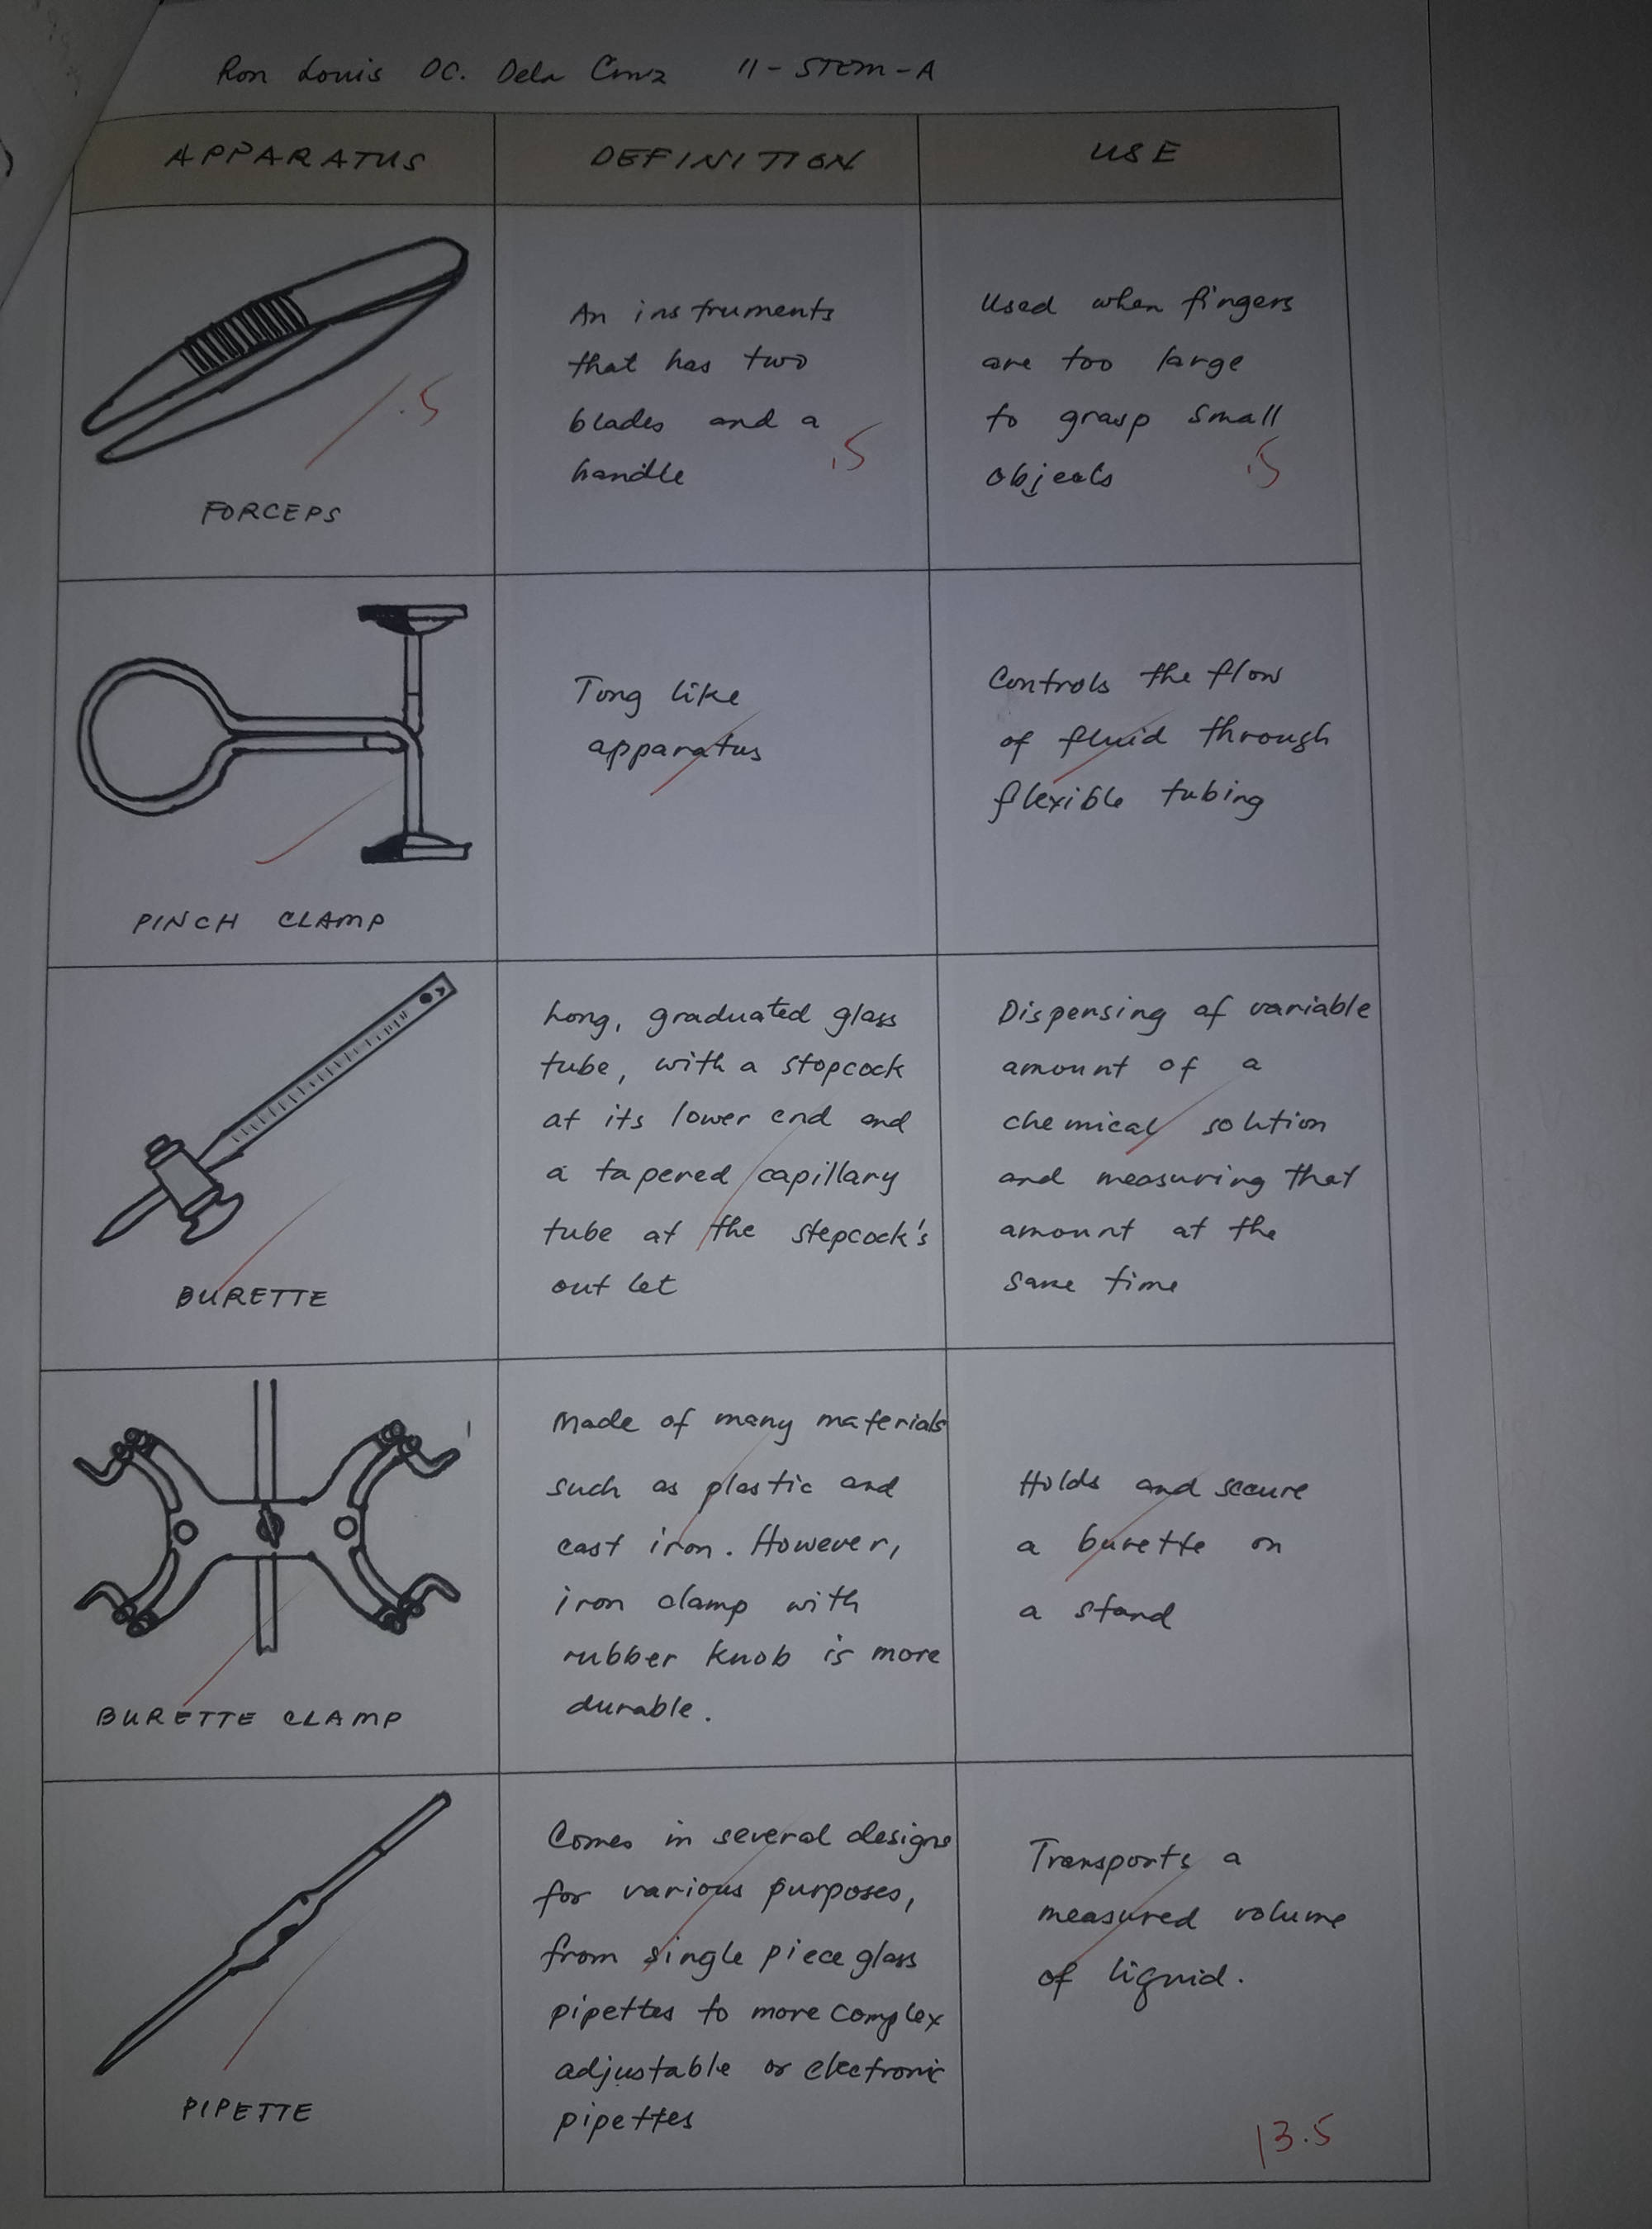 Ron Louis DC. Dela Cruz 11-STEM-A
APPARATUS DEFINITION USE
An instruments
that has two
blades and a
handle
Used when fingers
are too large
to grasp small
objects
.5
.5
.5
FORCEPS
Tong like
apparatus
Controls the flow
of fluid through
flexible tubing
PINCH CLAMP
Long, graduated glass
tube, with a stopcock
at its lower end and
a tapered capillary
tube at the stepcock's
out let
Dispensing of variable
amount of a
chemical solution
and measuring that
amount at the
same time
BURETTE
Made of many materials
such as plastic and
cast iron. However,
iron clamp with
rubber knob is more
durable.
Holds and secure
a burette on
a stand
BURETTE CLAMP
Comes in several designs
for various purposes,
from single piece glass
pipettes to more complex
adjustable or electronic
pipettes
Transports a
measured volume
of liquid.
PIPETTE
13.5